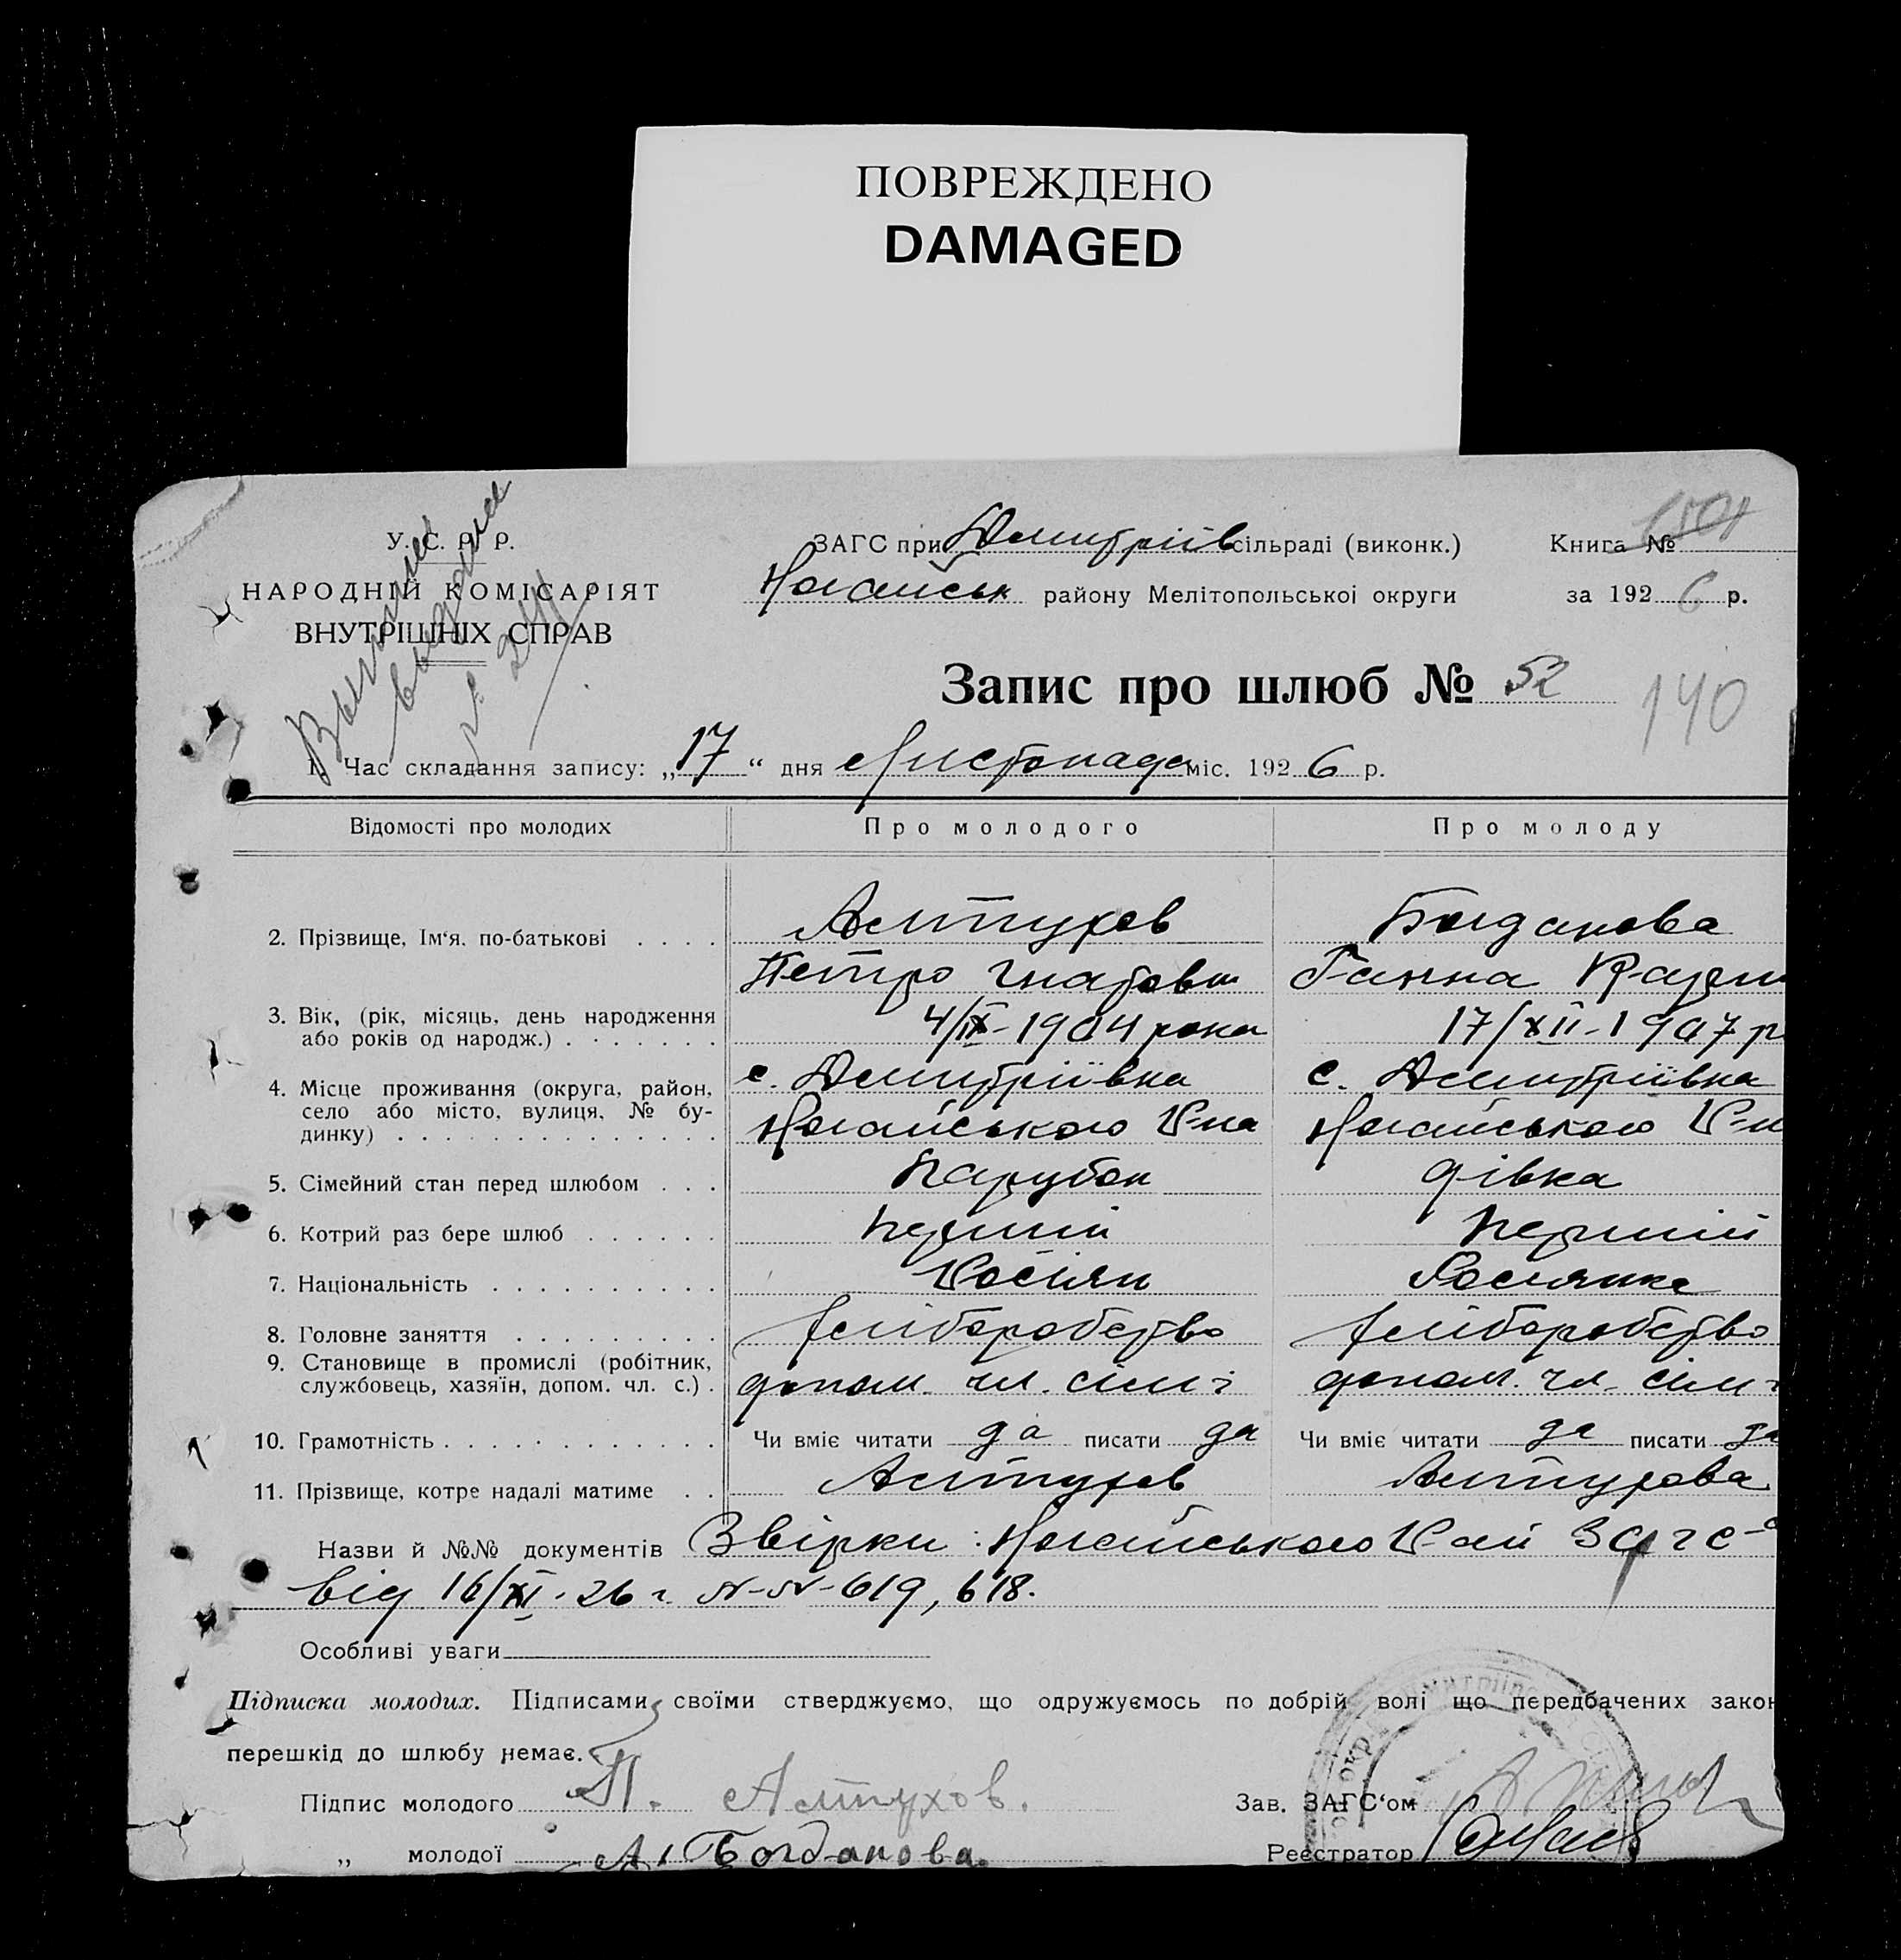 ПОВРЕЖДЕНО
DAMAGED
У. С. Р. Р.
НАРОДНІЙ КОМІСАРІЯТ
ВНУТРІШНІХ СПРАВ
ЗАГС при Дмитріїв сільраді (виконк.)
Ногайськ району Мелітопольської округи
Книга №
за 1926 р.
Запис про шлюб № 52
140
1. Час складання запису: „17“ дня Листопада міс. 1926 р.
Відомості про молодих Про молодого Про молоду
2. Прізвище, Ім‘я, по-батькові . . . . Алтухов Богданова
Петро Гнатови Ганна
3. Вік, (рік, місяць, день народження 4/IX-1904 рока 17/XII-1907 р
або років од народж.) . . . . . . .
4. Місце проживання (округа, район, с. Дмитріївка с. Дмитріївка
село або місто, вулиця, № бу-
динку) . . . . . . . . . . . . . . Ногайського Р-на Ногайського Р-н
5. Сімейний стан перед шлюбом . . . Парубок дівка
6. Котрий раз бере шлюб . . . . . . Перший Перший
7. Національність . . . . . . . . . . Росіян Росіянка
8. Головне заняття . . . . . . . . . Хліборобство Хліборобство
9. Становище в промислі (робітник,
службовець, хазяїн, допом. чл. с.) . допом. чл. сім'ї допом. чл. сім'ї
10. Грамотність . . . . . . . . . . . . Чи вміє читати да писати да Чи вміє читати да писати да
11. Прізвище, котре надалі матиме . . Алтухов Алтухова
Назви й №№ документів Звірки: Ногайського Рай Загс-а
від 16/XI-26 г. N-N-619, 618.
Особливі уваги
Підписка молодих. Підписами своїми стверджуємо, що одружуємось по добрій волі що передбачених закон
перешкід до шлюбу немає.
Підпис молодого П. Алтухов. Зав. ЗАГС‘ом
„ молодої А. Богданова. Реєстратор